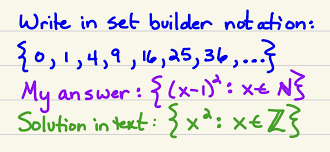 Write in set builder notation:
{0, 1, 4, 9, 16, 25, 36, ...}
My answer: {(x-1)²: x ∈ ℕ}
Solution in text: {x²: x ∈ ℤ}